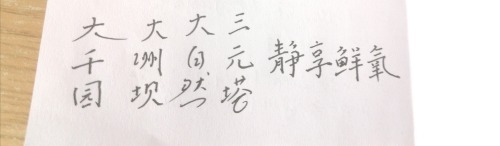 大千园
大洲坝
大自然
三元塔
静享鲜氧